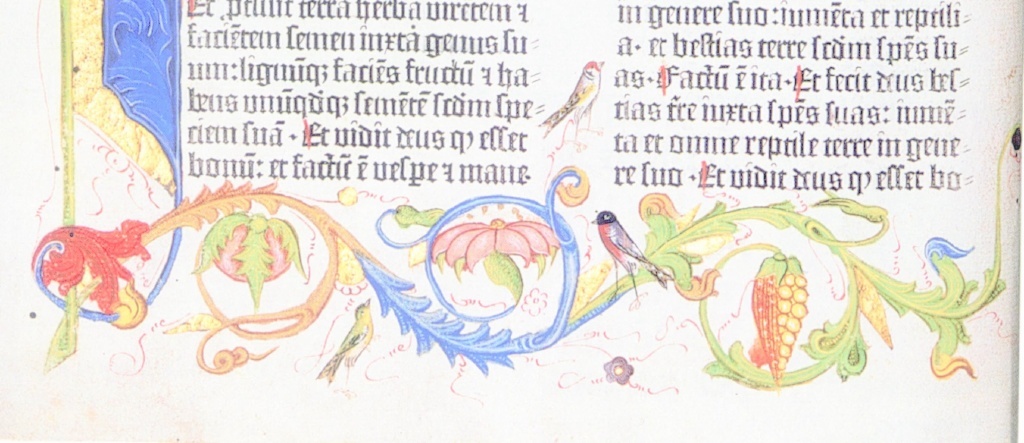 Et ꝓtulit terra herbā virētem ⁊
faciētem semen iuxta genus su⸗
um: lignūqꝫ faciēs fructū ⁊ ha⸗
bens unūqdqꝫ semētē scdm spe⸗
ciem suā. Et vidit deus ꝙ esset
bonū: et factū ē vespe ⁊ mane
in genere suo: iumēta et reptili⸗
a. et bestias terre scdm spēs su⸗
as. Factū ē ita. Et fecit deus bes⸗
tias t̄re iuxta spēs suas: iumē⸗
ta et omne reptile terre in gene⸗
re suo. Et vidit deus ꝙ esset bo⸗